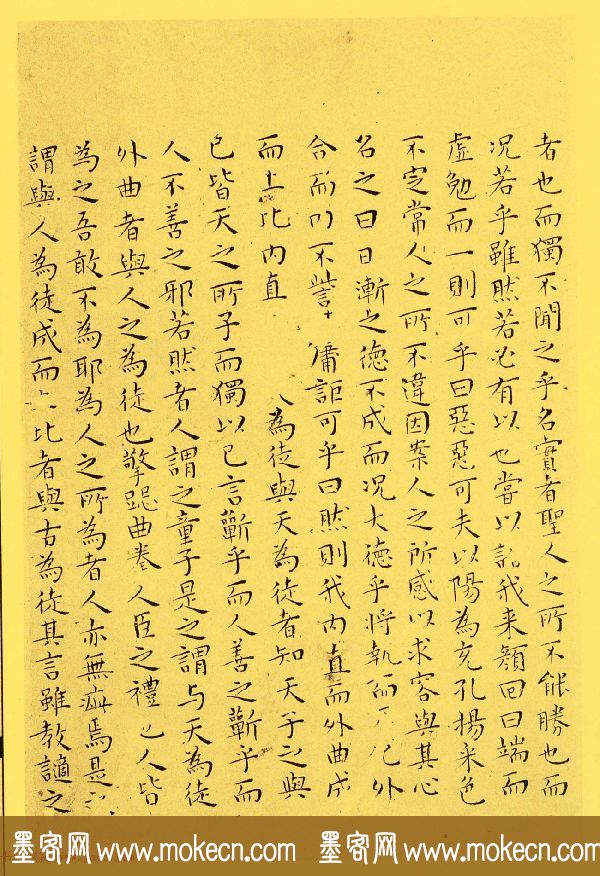 者也而獨不聞之乎名實者聖人之所不能勝也而
况若乎雖然若必有以也嘗以語我来顏回曰端而
虛勉而一則可乎曰惡惡可夫以陽為充孔揚采色
不定常人之所不違因案人之所感以求容與其心
名之曰日漸之德不成而况大德乎將執而不化外
合而内不訾 庸詎可乎曰然則我内直而外曲成
而上比内直 為徒與天為徒者知天子之與
已皆天之所子而獨以已言蘄乎而人善之蘄乎而
人不善之邪若然者人謂之童子是之謂与天為徒
外曲者與人之為徒也擎跽曲拳人臣之禮也人皆
為之吾敢不為耶為人之所為者人亦無疵焉是之
謂與人為徒成而上比者與古為徒其言雖教謫之
墨客网 www.mokecn.com 墨客网 www.mokecn.com